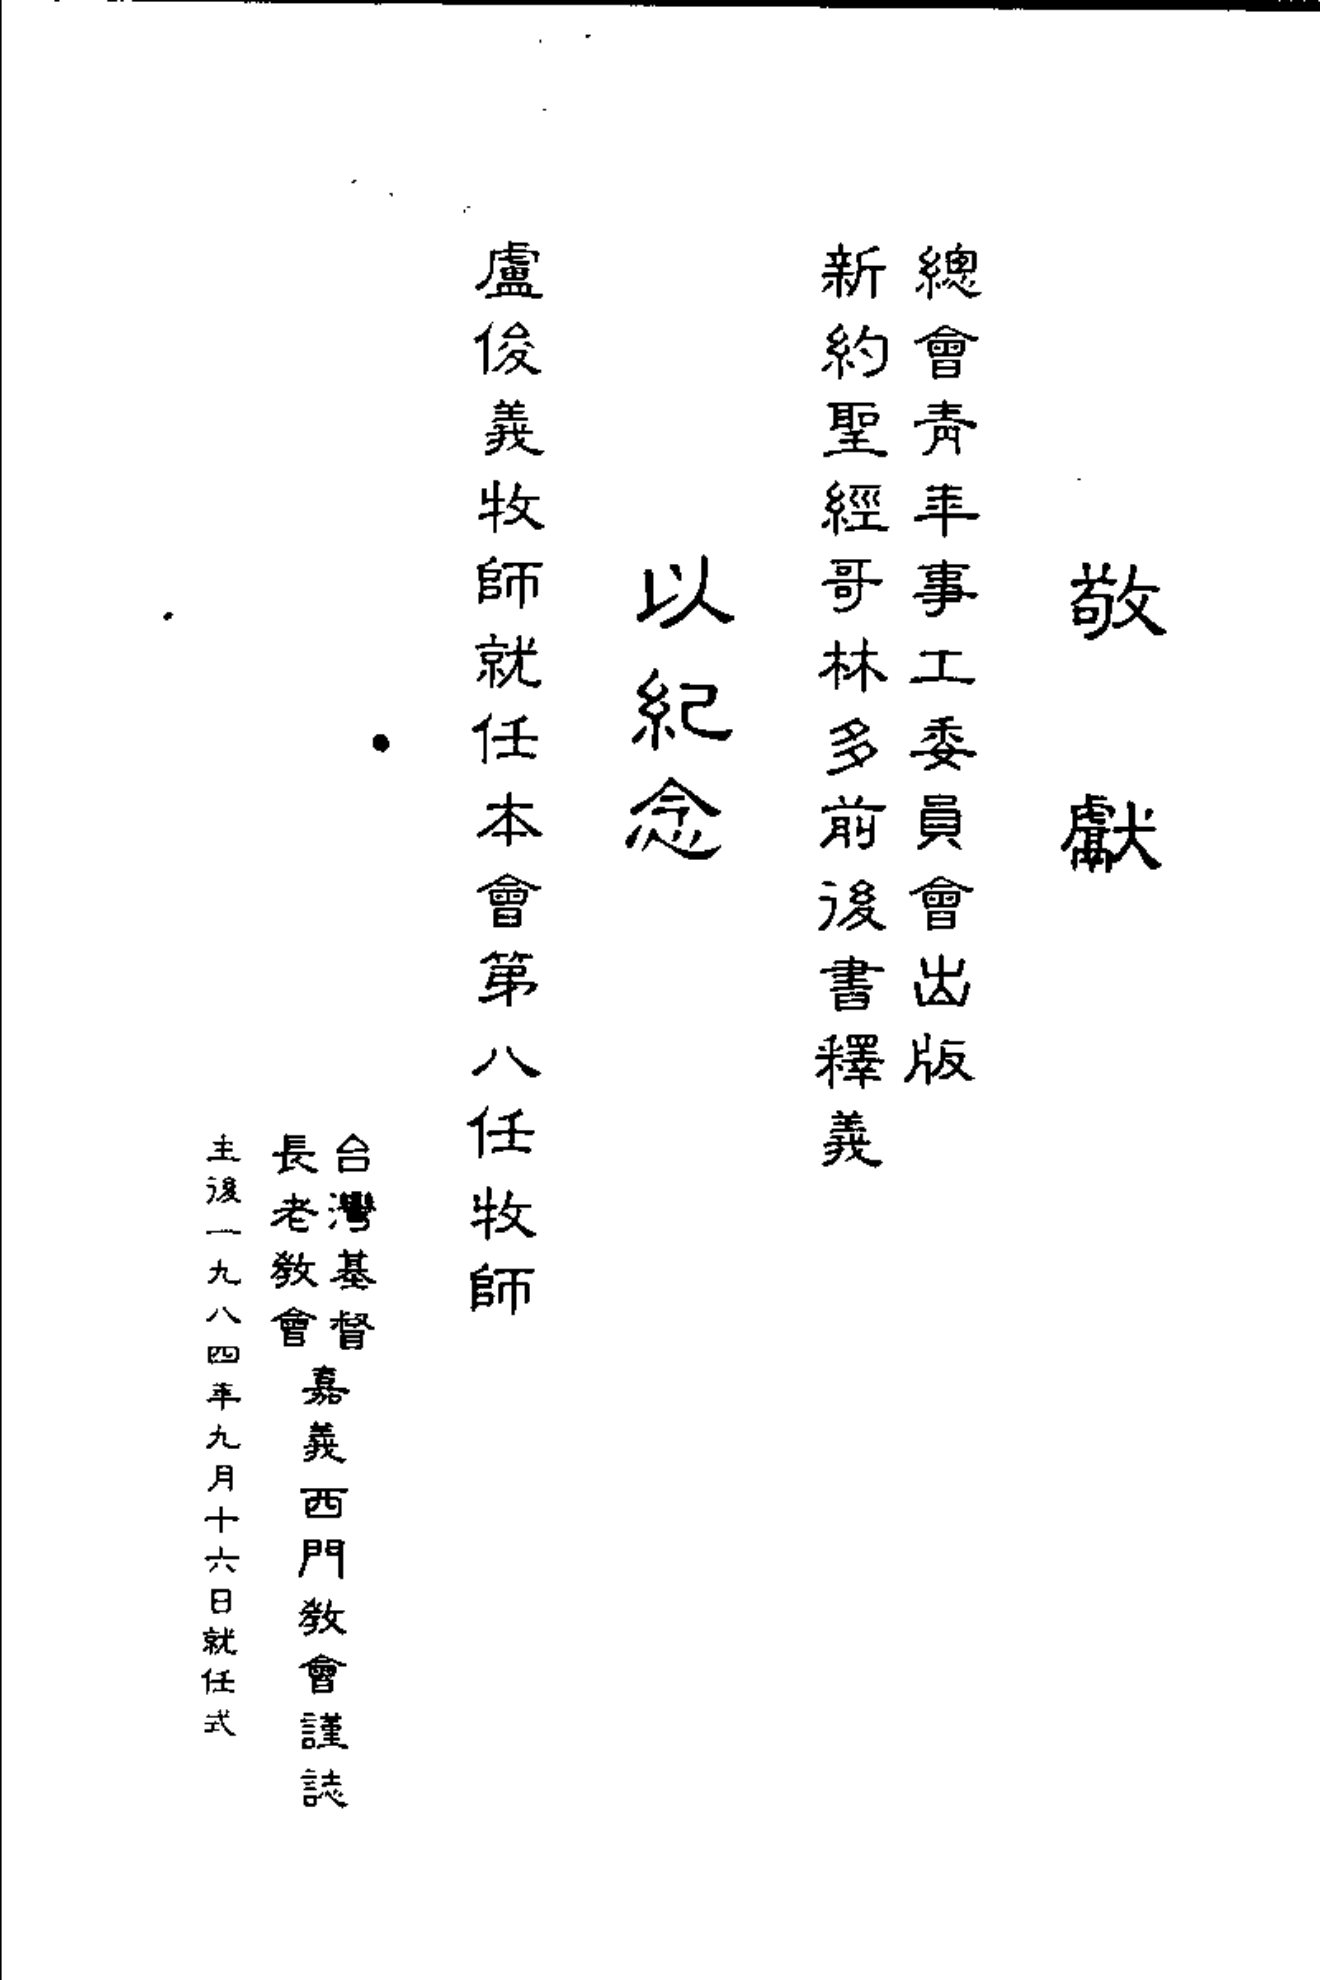 敬獻
總會青年事工委員會出版
新約聖經哥林多前後書釋義
以紀念
盧俊義牧師就任本會第八任牧師
台灣基督
長老教會
嘉義西門教會謹誌
主後一九八四年九月十六日就任式